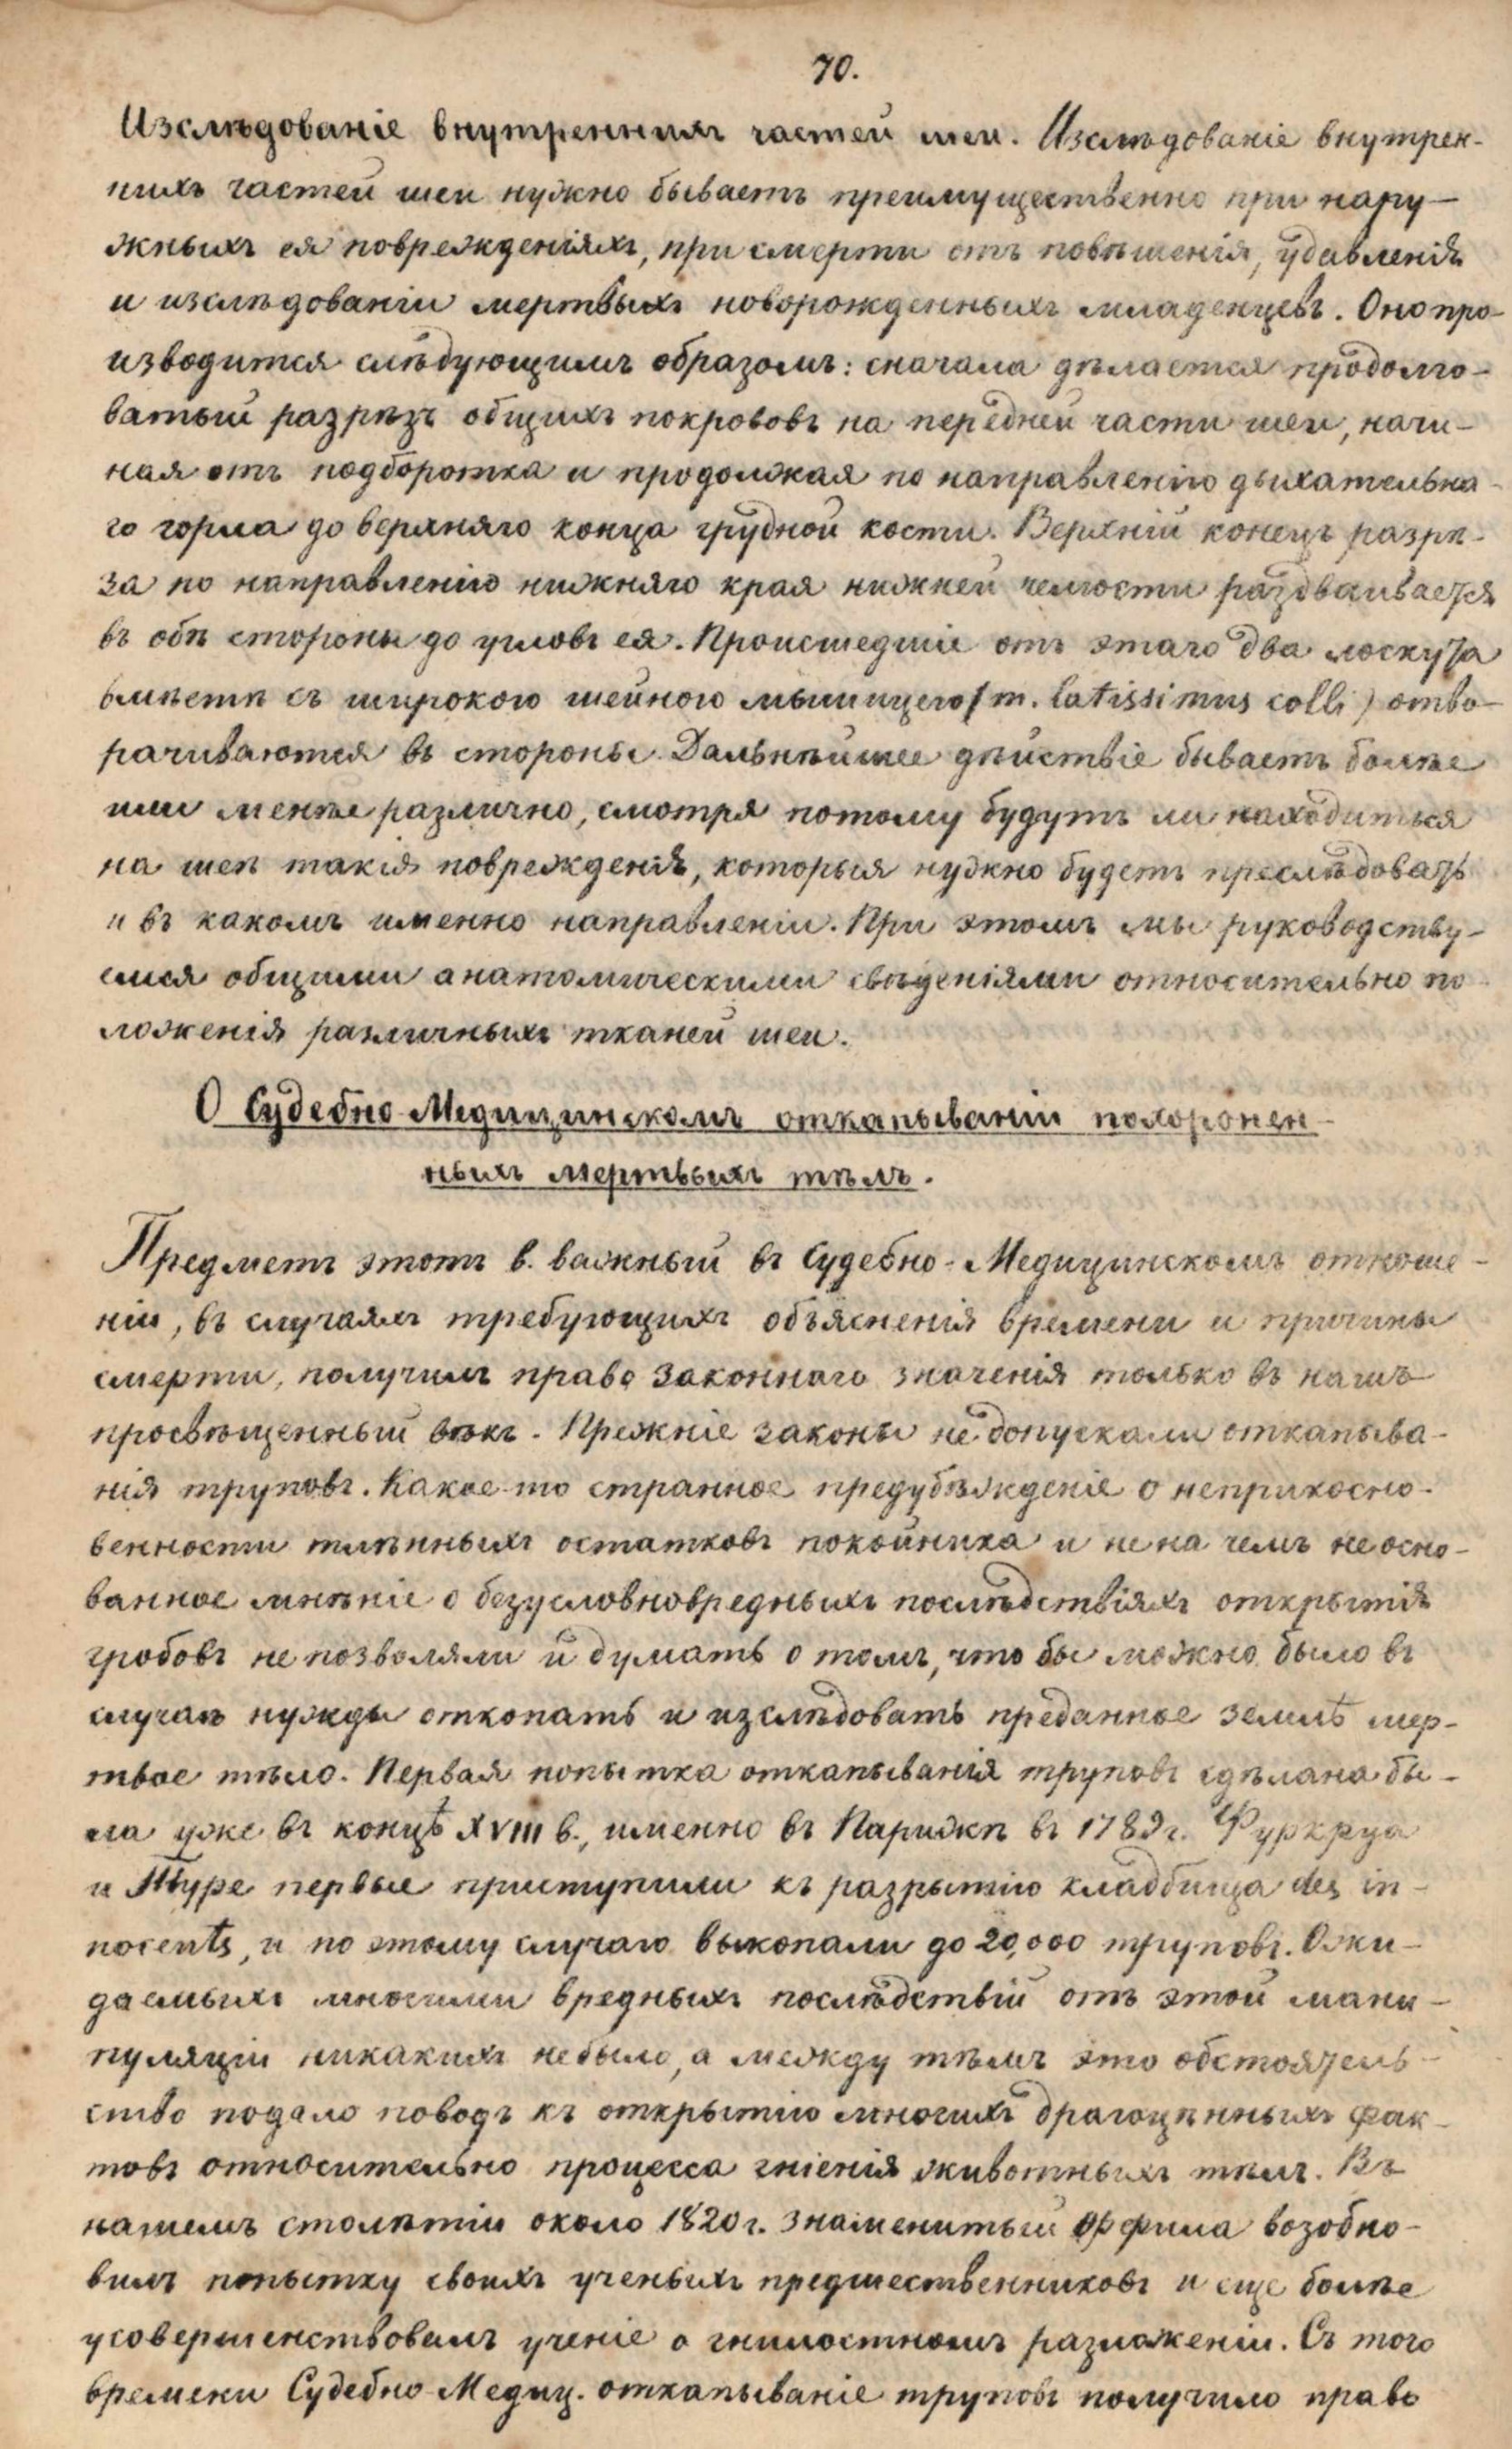 70.
Изслѣдованіе внутреннихъ частей шеи. Изслѣдованіе внутрен-
нихъ частей шеи нужно бываетъ преимущественно при нару-
жныхъ ея поврежденіяхъ, при смерти отъ повѣшенія, удавленія
и изслѣдованіи мертвыхъ новорожденныхъ младенцевъ. Оно про-
изводится слѣдующимъ образомъ: сначала дѣлается продолго-
ватый разрѣзъ общихъ покрововъ на передней части шеи, начи-
ная отъ подбородка и продолжая по направленію дыхательна-
го горла до верхняго конца грудной кости. Верхній конецъ разрѣ-
за по направленію нижняго края нижней челюсти раздваивается
въ обѣ стороны до угловъ ея. Происшедшіе отъ этаго два лоскута
вмѣстѣ съ широкою шейною мышицею (m. latissimus colli) отво-
рачиваются въ стороны. Дальнѣйшее дѣйствіе бываетъ болѣе
или менѣе различно, смотря потому будутъ ли находиться
на шеѣ такія поврежденія, которыя нужно будетъ преслѣдовать
и въ какомъ именно направленіи. При этомъ мы руководству-
емся общими анатомическими свѣденіями относительно по-
ложенія различныхъ тканей шеи.
О Судебно-Медицинскомъ откапываніи похоронен-
ныхъ мертвыхъ тѣлъ.
Предметъ этотъ в. важный въ Судебно-Медицинскомъ отноше-
ніи, въ случаяхъ требующихъ объясненія времени и причины
смерти, получилъ право законнаго значенія только въ нашъ
просвѣщенный вѣкъ. Прежніе законы не допускали откапыва-
нія труповъ. Какое-то странное предубѣжденіе о неприкосно-
венности тлѣнныхъ остатковъ покойника и не на чемъ не осно-
ванное мнѣніе о безусловновредныхъ послѣдствіяхъ открытія
гробовъ не позволяли и думать о томъ, что бы можно было въ
случаѣ нужды откопать и изслѣдовать преданное землѣ мер-
твое тѣло. Первая попытка откапыванія труповъ сдѣлана бы-
ла уже въ концѣ XVIII в., именно въ Парижѣ въ 1783 г. Фуркруа
и Туре первые приступили къ разрытію кладбища des in-
nocents, и по этому случаю выкопали до 20,000 труповъ. Ожи-
даемыхъ многими вредныхъ послѣдствій отъ этой мани-
пуляціи никакихъ небыло, а между тѣмъ это обстоятель-
ство подало поводъ къ открытію многихъ драгоцѣнныхъ фак-
товъ относительно процесса гніенія животныхъ тѣлъ. Въ
нашемъ столѣтіи около 1820 г. знаменитый Орфила возобно-
вилъ попытку своихъ ученыхъ предшественниковъ и еще болѣе
усовершенствовалъ ученіе о гнилостномъ разложеніи. Съ того
времени Судебно-Медиц. откапываніе труповъ получило право